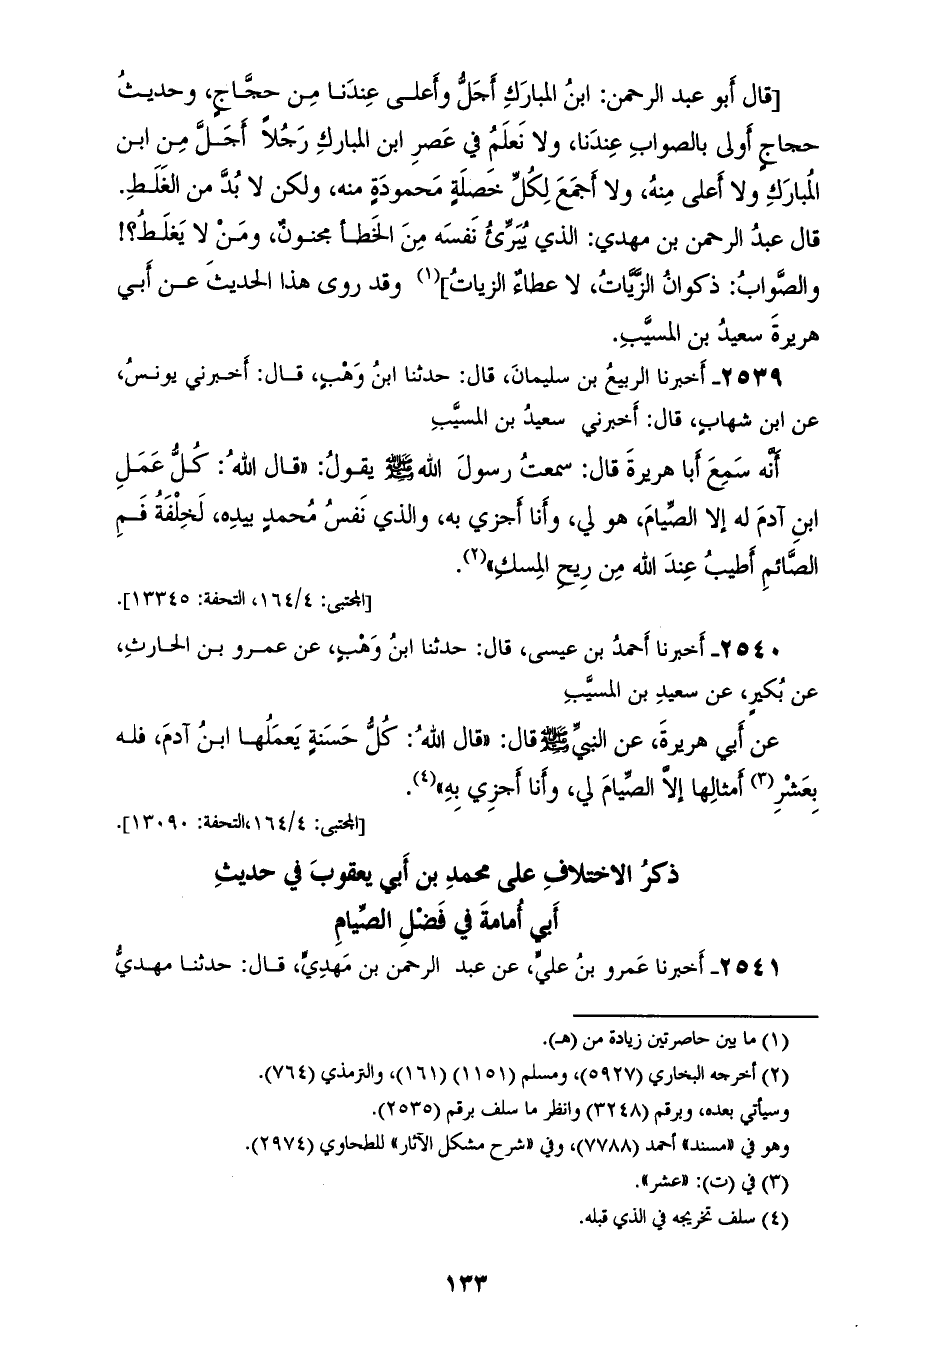 [قال أَبو عبد الرحمن: ابنُ المبارَكِ أَجَلُّ وأَعلى عِندَنا مِن حجَّاجٍ، وحديثُ
حجاجٍ أَولى بالصوابِ عِندَنا، ولا نَعلَمُ في عَصرِ ابن المباركِ رَجُلاً أَجَلَّ مِن ابن
المُبارَكِ ولا أَعلى مِنهُ، ولا أَجمَعَ لِكُلِّ خَصلَةٍ مَحمودَةٍ منه، ولكن لا بُدَّ من الغَلَطِ.
قال عبدُ الرحمن بن مهدي: الذي يُبَرِّئُ نَفسَه مِنَ الخَطأ مجنونٌ، ومَنْ لا يَغلَطُ؟!
والصَّوابُ: ذكوانُ الزَّيَّاتُ، لا عطاءٌ الزياتُ](١) وقد روى هذا الحديثَ عن أَبي
هريرةَ سعيدُ بن المسيَّبِ.
٢٥٣٩ـ أَخبرنا الربيعُ بن سليمانَ، قال: حدثنا ابنُ وَهْبٍ، قال: أَخبرني يونسُ،
عن ابن شهابٍ، قال: أَخبرني سعيدُ بن المسيَّبِ
أَنَّه سَمِعَ أَبا هريرةَ قال: سمعتُ رسولَ اللهﷺ يقولُ: «قال اللهُ: كُلُّ عَمَلِ
ابنِ آدمَ له إلا الصِّيامَ، هو لي، وأَنا أَجزي به، والذي نَفسُ مُحمدٍ بيدِه، لَخِلْفَةُ فَمِ
الصَّائمِ أَطيبُ عِندَ الله مِن رِيحِ المِسكِ»(٢).
[المجتبى: ١٦٤/٤، التحفة: ١٣٣٤٥].
٢٥٤٠ـ أَخبرنا أَحمدُ بن عيسى، قال: حدثنا ابنُ وَهْبٍ، عن عمرو بن الحارثِ،
عن بُكيرٍ، عن سعيدِ بن المسيَّبِ
عن أَبي هريرةَ، عن النبيِّﷺقال: «قال اللهُ: كُلُّ حَسَنةٍ يَعمَلُها ابنُ آدمَ، فله
بِعَشْرِ(٣) أَمثالِها إلاَّ الصِّيامَ لي، وأَنا أَجزِي بِهِ»(٤).
[المجتبى: ١٦٤/٤،التحفة: ١٣٠٩٠].
ذكرُ الاختلافِ على محمدِ بن أَبي يعقوبَ في حديثِ
أَبي أُمامةَ في فَضْلِ الصِّيامِ
٢٥٤١ـ أَخبرنا عَمرو بنُ عليٍّ، عن عبد الرحمن بن مَهديٍّ، قال: حدثنا مهديُّ
(١) ما بين حاصرتين زيادة من (هـ).
(٢) أخرجه البخاري (٥٩٢٧)، ومسلم (١١٥١) (١٦١)، والترمذي (٧٦٤).
وسيأتي بعده، وبرقم (٣٢٤٨) وانظر ما سلف برقم (٢٥٣٥).
وهو في «مسند» أحمد (٧٧٨٨)، وفي «شرح مشكل الآثار» للطحاوي (٢٩٧٤).
(٣) في (ت): «عشر».
(٤) سلف تخريجه في الذي قبله.
١٣٣